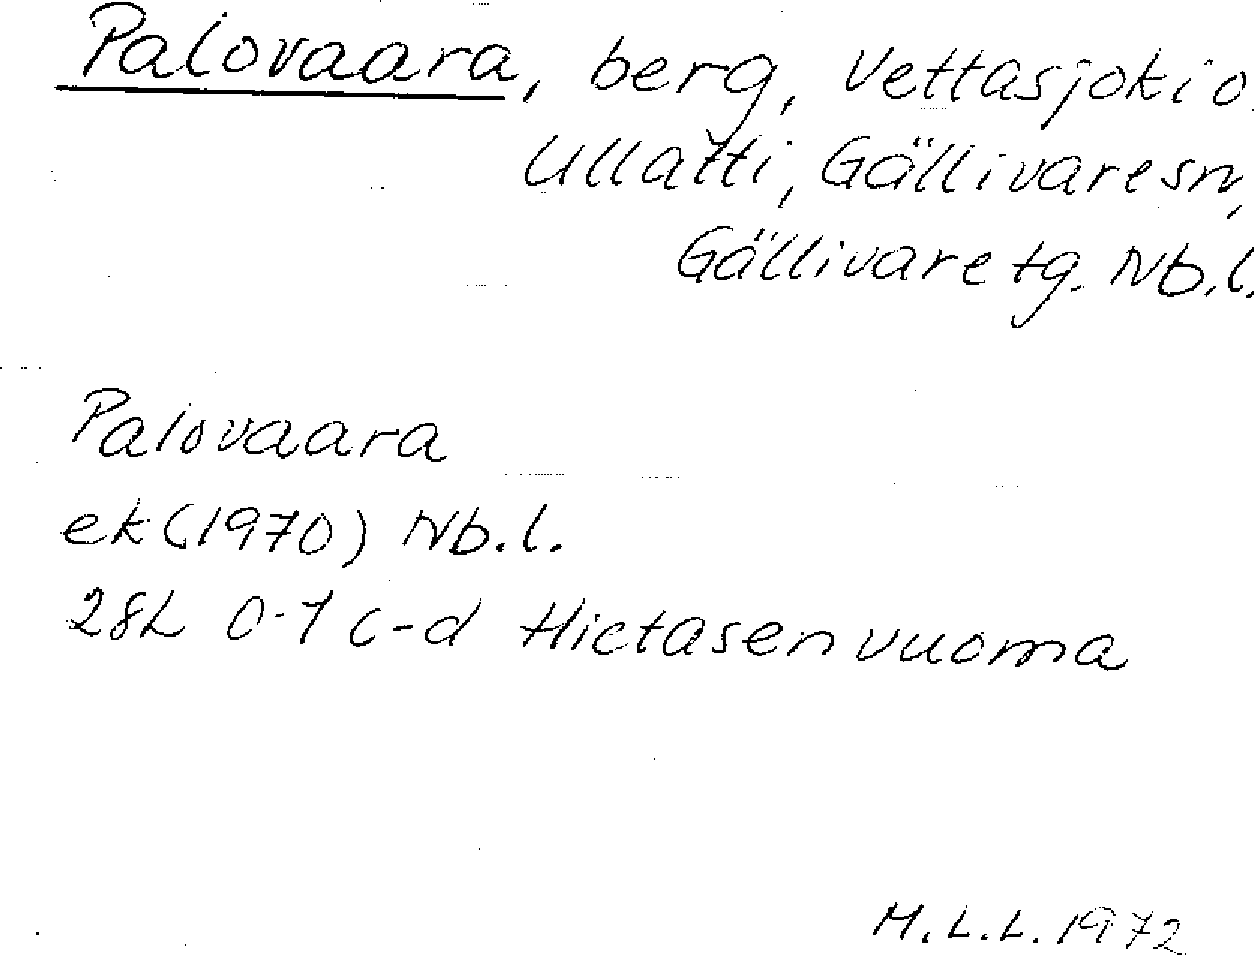 Palovaara, berg, Vettasjoki o.
Ullatti, Gällivare sn,
Gällivare tg. Nb.l.
Palovaara
ek (1970) Nb.l.
28L 0-1 c-d Hietasenvuoma
M.L.L. 1972